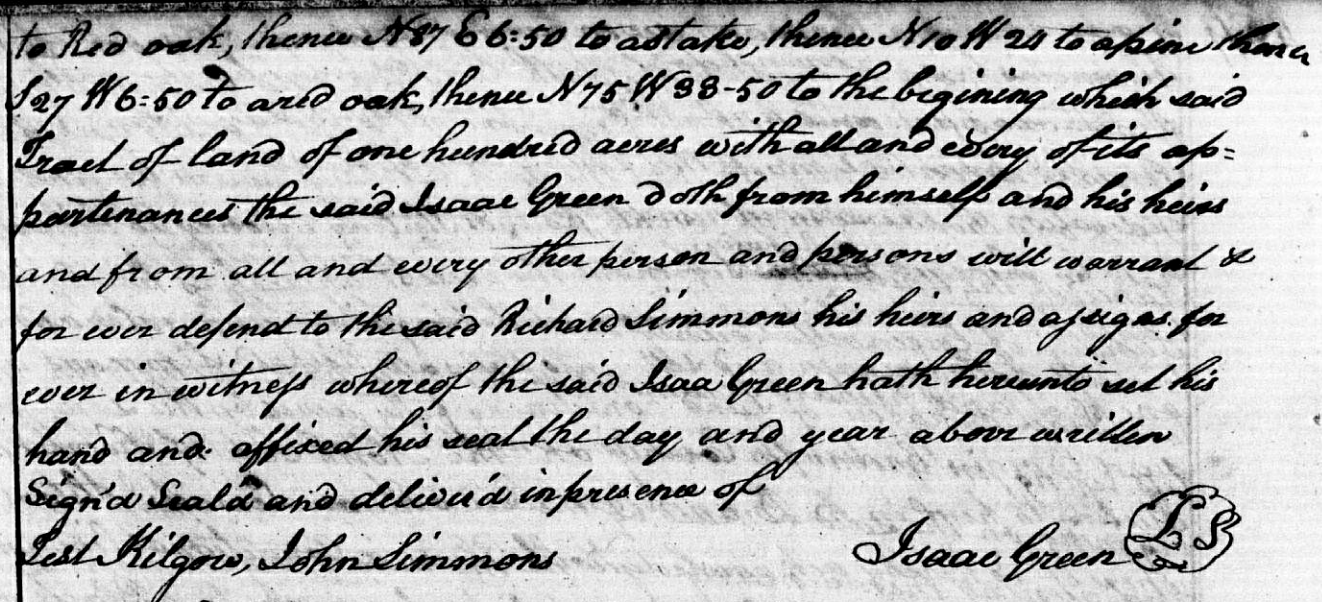 to Red oak, thence N 87 E 6:50 to a stake, thence N 10 W 24 to a pine thence
S 27 W 6:50 to a red oak, thence N 75 W 38-50 to the begining which said
Tract of land of one hundred acres with all and every of its ap=
partenances the said Isaac Green doth from himself and his heirs
and from all and every other person and persons will warrant &
for ever defend to the said Richard Simmons his heirs and assigns for
ever in witness whereof the said Isaa Green hath hereunto set his
hand and affixed his seal the day and year above written
Sign'd Seal'd and deliver'd in presence of
Test Kilgow, John Simmons Isaac Green L S